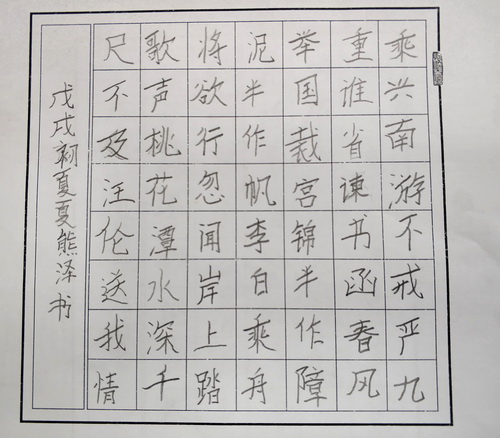 乘兴南游不戒严九
重谁省谏书函春风
举国裁宫锦半作障
泥半作帆李白乘舟
将欲行忽闻岸上踏
歌声桃花潭水深千
尺不及汪伦送我情
戊戌初夏夏熊泽书